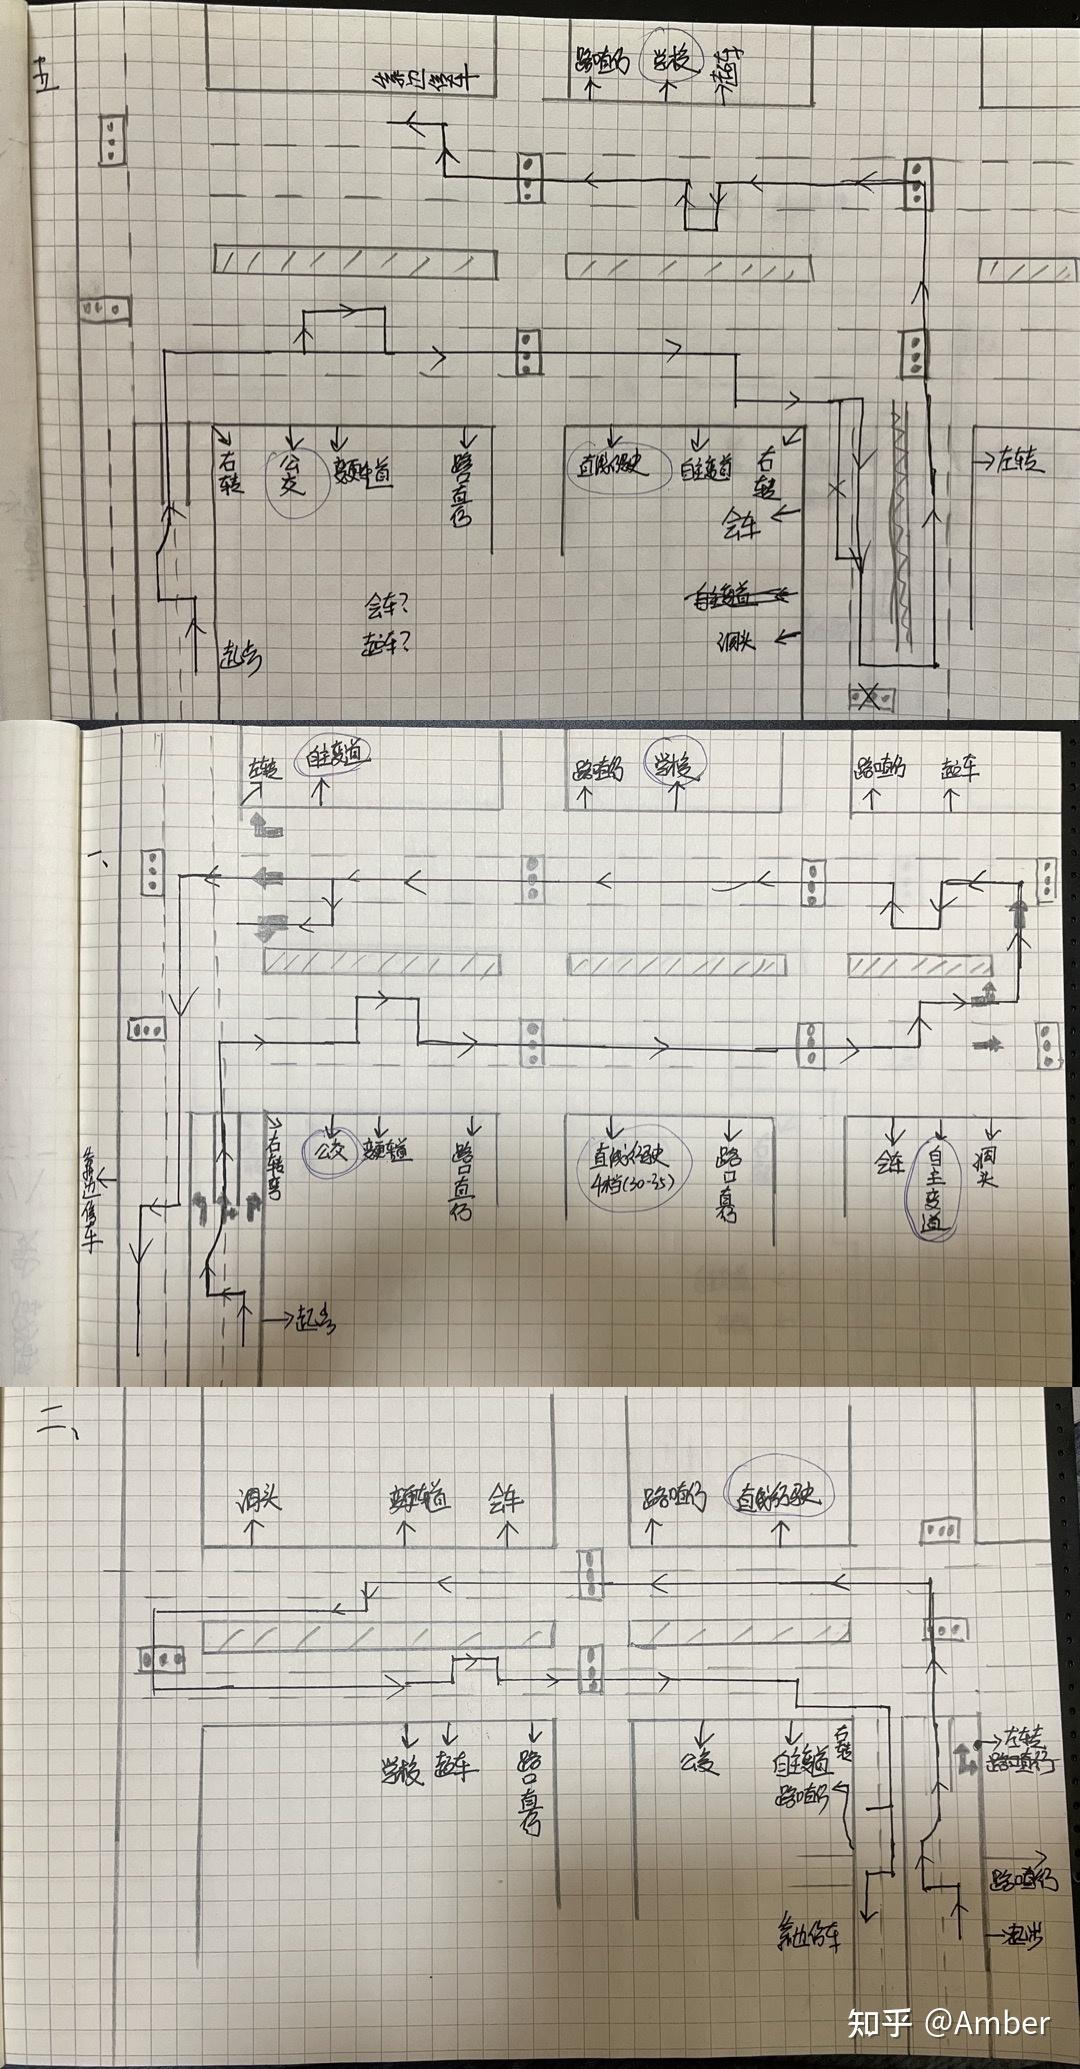 五
靠边停车
路口直行
学校
超车
右转
公交
变更车道
路口直行
直线行驶
自主变道
右转
会车
自主变道
掉头
左转
会车?
超车?
起步
一、
左转
自主变道
路口直行
学校
路口直行
超车
靠边停车
右转弯
公交
变更车道
路口直行
直线行驶
4档(30-35)
路口直行
会车
自主变道
掉头
起步
二、
掉头
变更车道
会车
路口直行
直线行驶
学校
超车
路口直行
公交
自主变道
右转
路口直行
左转
路口直行
路口直行
靠边停车
起步
知乎 @Amber